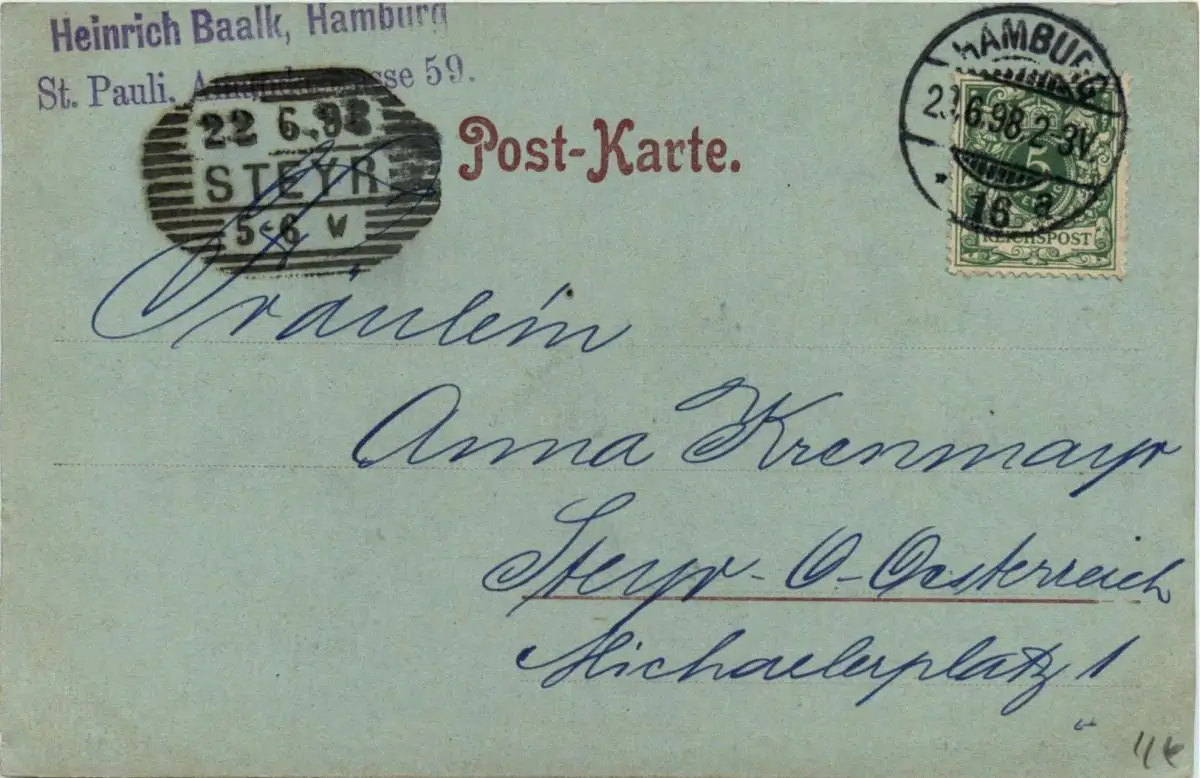 Heinrich Baalk, Hamburg
St. Pauli. Amandastrasse 59.
22 6.98
STEYR
5-6 V
Post-Karte.
HAMBURG
6.98 2-3V
* 16 a
5
REICHSPOST
Fräulein
Anna Krenmayr
Steyr - O-Oesterreich
Michaelerplatz 1